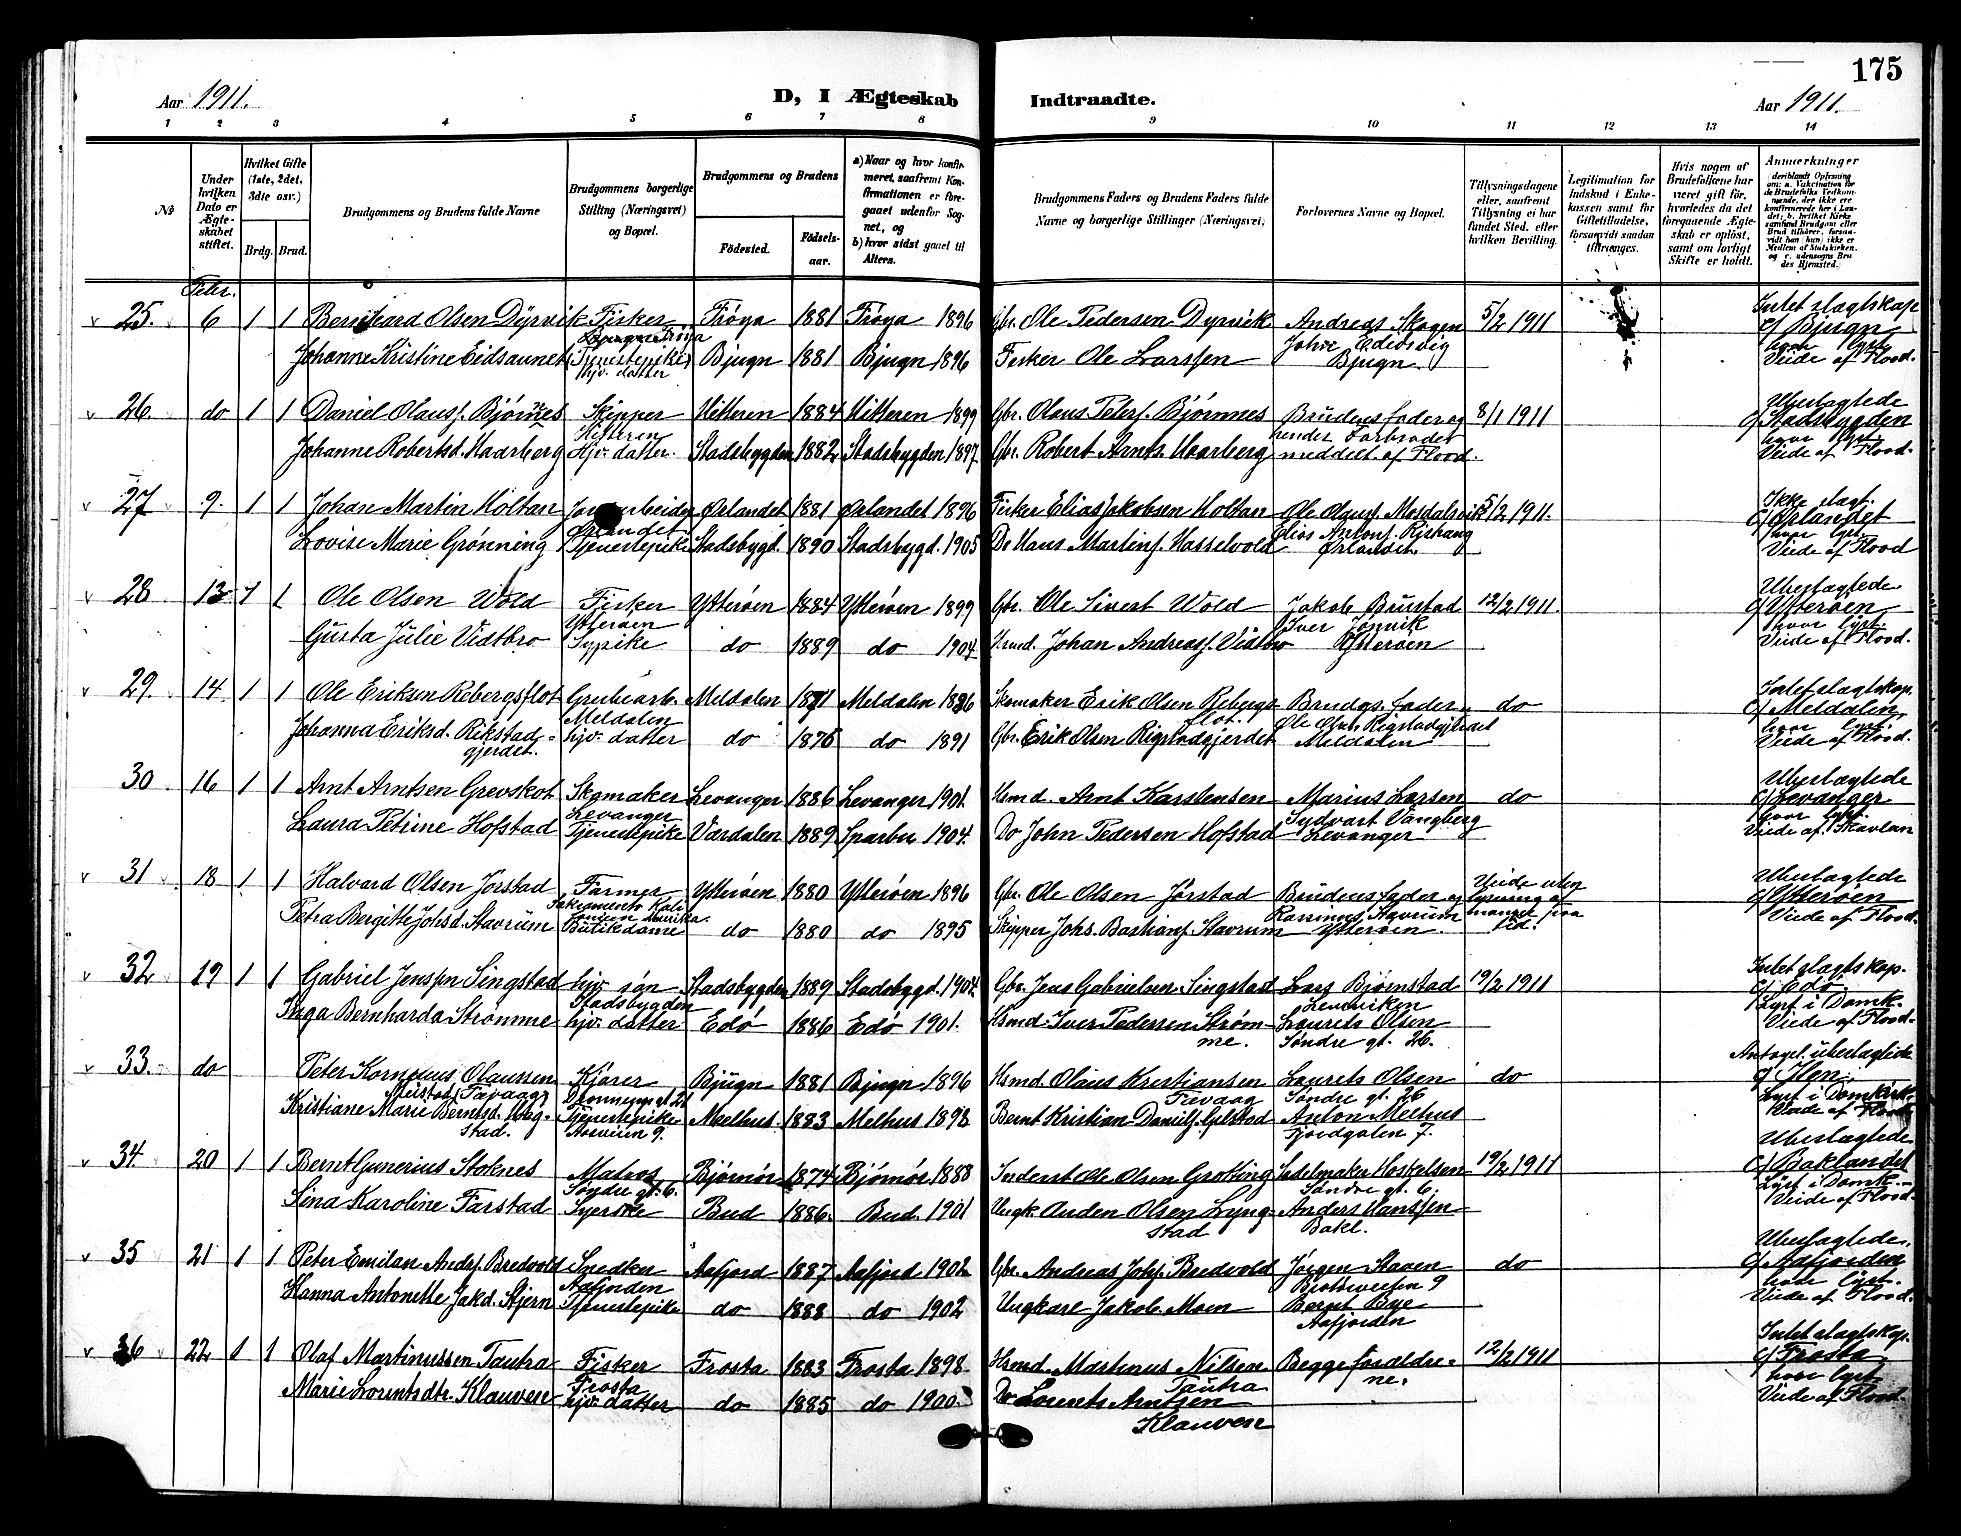 175
Aar 1911.
D, I Ægteskab
Indtraadte.
Aar 1911.
1 2 3 4 5 6 7 8 9 10 11 12 13 14
No
Under hvilken Dato er Ægteskabet stiftet.
Hvilket Gifte (1ste, 2det, 3die osv.)
Brdg. Brud.
Brudgommens og Brudens fulde Navne
Brudgommens borgerlige Stilling (Næringsvei) og Bopæl.
Brudgommens og Brudens
Fødested.
Fødselsaar.
a) Naar og hvor konfirmeret, saafremt Konfirmationen er foregaaet udenfor Sognet, og
b) hvor sidst gaaet til Alters.
Brudgommens Faders og Brudens Faders fulde Navne og borgerlige Stillinger (Næringsvei)
Forlovernes Navne og Bopæl.
Tillysningsdagene eller, saafremt Tillysning ei har fundet Sted, efter hvilken Bevilling.
Legitimation for Indskud i Enkekassen samt for Giftetilladelse, forsaavidt saadan tiltrænges.
Hvis nogen af Brudefolkene har været gift før, hvorledes da det foregaaende Ægteskab er opløst, samt om lovligt Skifte er holdt.
Anmerkninger
Febr.
25. 6 1 1 Bernhard Olsen Dyrvik Fisker Frøya 1881 Frøya 1896 Gbr. Ole Pedersen Dyrvik Andreas Skogen 5/2 1911 Intet slagtskap
c/ Bjugn
Johanne Kristine Eidsaunet (Tjenestepike) hjv. datter Bjugn 1881 Bjugn 1896 Fisker Ole Larssen Bjugn. hvor lyst
Viede af Flood.
26. do 1 1 Daniel Olausf. Bjørnnes Skipper Hitteren 1884 Hitteren 1899 Gbr. Olaus Petersf. Bjørnnes Brudens fader og 8/1 1911 Ubeslægtede
c/ Stadsbygden
Johanne Robertsd. Haarberg Hitteren Hjv. datter. Stadsbygden 1882 Stadsbygden 1897. Gbr. Robert Arnts. Haarberg meddelt af Flood. hvor lyst
Viede af Flood.
27 9. 1 1 Johan Martin Holtan Ørlandet 1881 Ørlandet 1896 Fisker Elias Jakobsen Holtan Ole Olausf. Mosdalsvik 5/2 1911. Ikke slagt.
c/ Ørlandet
Lovise Marie Grønning Ørlandet Tjenestepike Stadsbygd. 1890 Stadsbygd. 1905 Do Hans Martinf. Hasselvold Elias Antonf. Rishaug Ørlandet. hvor lyst
Viede af Flood
28 13 1 1 Ole Olsen Wold Fisker Ytterøen 1884 Ytterøen 1899 Gbr. Ole Sivert Wold Jakob Brustad 12/2 1911. Ubeslagtede
c/ Ytterøen
Gusta Julie Vidtbro Ytterøen Sypike do 1889 do 1904 Johan Andreasf. Vidtbro Iver Ytterøen hvor lyst.
Viede af Flood.
29. 14. 1 1 Ole Eriksen Rebergsflot Grubearb. Meldalen 1871 Meldalen 1886 Skomaker Erik Olsen Rebergsflot. Brudgs. fader do Intet slagtskap.
c/ Meldalen,
Johanna Eriksd. Rikstadgjerdet. Meldalen hjv. datter do 1876 do 1891 Gbr. Erik Olsen Rigstadgjerdet Ole Olsen Rigstadgjerdet Meldalen hvor lyst.
Viede af Flood.
30 16 1 1 Arnt Arntsen Grevskot Skomaker Levanger 1886 Levanger 1901. Hsmd. Arnt Karstensen Marius Larsen do Ubeslægtede
c/ Levanger
Laura Petrine Hofstad Levanger Tjenestepike Værdalen 1889 Sparbu 1904. Do John Pedersen Hofstad Sydvart Vangberg Levanger hvor lyst.
Viede af Skavlan
31 18 1 1 Halvard Olsen Jørstad Farmer Ytterøen 1880 Ytterøen 1896 Gbr. Ole Olsen Jørstad Brudens fader og Viede uten lysning af mangel paa tid. Ubeslagtede
c/ Ytterøen
Petra Bergitte Johsd. Stavrum Sakramento Kalifonien Amerika. Butikdame do 1880 do 1895 Skipper Johs. Bastianf. Stavrum Rasmines Stavrum Ytterøen. Viede af Flood.
32 19 1 1 Gabriel Jensen Singstad hjv. søn Stadsbygden 1889 Stadsbygd. 1904. Gbr. Jens Gabrielsen Singstad Lars Bjørnstad 19/2 1911 Intet slagtskap.
c/ Edø.
Inga Bernharda Strømme Stadsbygden hjv. datter Edø 1886 Edø 1901. Hsmd. Iver Pedersen Strømme. Levanviken Laurets Olsen Søndre gt. 26. Lyst i Domk.
Viede af Flood.
33. do Peter Kornelius Olaussen Kjører Bjugn 1881 Bjugn 1896 Hsmd. Olaus Kristiansen Laurets Olsen do Antagel. ubeslagtede
c/ Ilen.
Kristiane Marie Berntsd. Tjenestepike Melhus 1883 Melhus 1898 Bernt Kristian Danielf. Gylstad Søndre gt. 26 Anton Melhus Fjordgaten 7. Lyst i Domkirk.
Viede af Flood
34. 20 1 1 Bernt Gunerius Stoknes Matros Bjørnør 1874 Bjørnør 1888 Inderst Ole Olsen Grotting Sadelmaker Hoskelsen 19/2 1911 Ubeslægtede
c/ Baklandet
Sina Karoline Farstad Søndre gt. 6. Syerske Bud 1886. Bud. 1901 Ungk. Anden Olsen Lyngstad Søndre gt. 6. Anders Hanssen Bakl. Lyst i Domk.
Viede af Flood.
35 21 1 1 Peter Emilan Andsf. Bredvold Snedker Aafjord 1887 Aafjord 1902 Gbr. Andreas Johsf. Bredvold Jørgen Staven do Ubeslagtede.
c/ Aafjorden
Hanna Antonette Jakd. Stjern Aafjorden Tjenestepike do 1888 do 1902 Ungkarl Jakob Moen Bernt Bye Aafjorden hvor lyst.
Viede af Flood.
36 22 1 1 Olaf Martinussen Tautra Fisker Frosta 1883 Frosta 1898. Hsmd. Martinus Nilsen Tautra Begge forældrene. 12/2 1911 Intet slagtskap.
c/ Frosta
Marie Lorentsdtr. Klauven Frosta hjv. datter do 1885 do 1900. Do Lorents Arntsen Klauven hvor lyst
Viede af Flood.